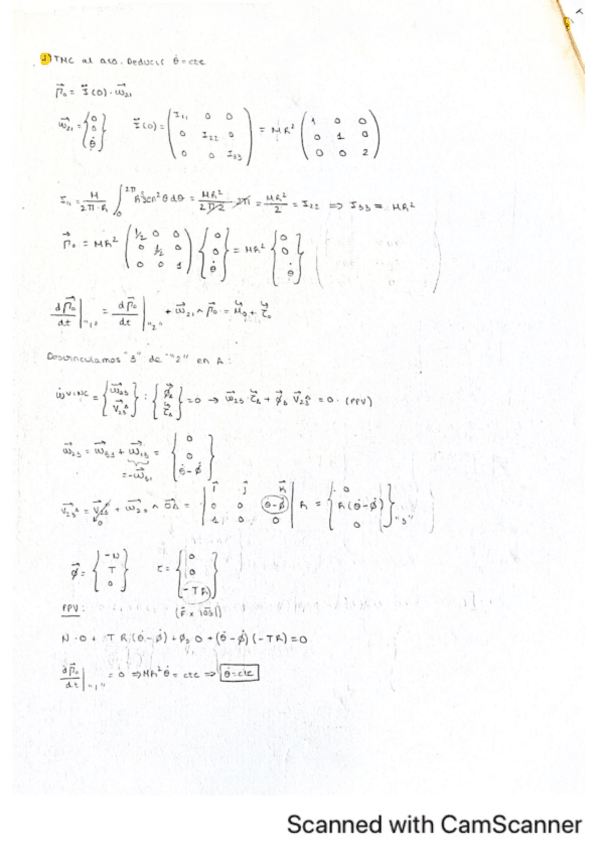 2) TMC al aro. Deducir θ̇ = cte
Γ⃗₀ = I(0) · ω⃗₂₁
ω⃗₂₁ = {0 0 θ̇} I(0) = (I₁₁ 0 0 / 0 I₂₂ 0 / 0 0 I₃₃) = MR² (1 0 0 / 0 1 0 / 0 0 2)
I₁₁ = M/(2π·R) ∫₀^2π R³ sen²θ dθ = MR²/(2π·2) 2π = MR²/2 = I₂₂ ⇒ I₃₃ = MR²
Γ⃗₀ = MR² (1/2 0 0 / 0 1/2 0 / 0 0 1) {0 0 θ̇} = MR² {0 0 θ̇}
dΓ⃗₀/dt|"1" = dΓ⃗₀/dt|"2" + ω⃗₂₁ ∧ Γ⃗₀ = M₀ + τ₀
Desvinculamos "3" de "2" en A:
ẆVINC = {ω⃗₂₃ V⃗₂₃ᴬ} : {φ⃗ᴀ τ⃗ᴀ} = 0 → ω⃗₂₃ · τ⃗ᴀ + φ⃗ᴀ V⃗₂₃ᴬ = 0. (PPV)
ω⃗₂₃ = ω⃗₂₁ + ω⃗₁₃ = {0 0 θ̇-φ̇}
= -ω⃗₃₁
V⃗₂₃ᴬ = V⃗₂₃ + ω⃗₂₃ ∧ OA = |i j k / 0 0 θ̇-φ̇ / 1 0 0| R = {0 R(θ̇-φ̇) 0}"3"
φ⃗ = {-N T 0} τ = {0 0 -TR}
PPV:
N · 0 + T R(θ̇-φ̇) + φ₃ 0 + (θ̇-φ̇)(-TR) = 0
dΓ⃗₀/dt|"1" = 0 ⇒ MR²θ̇ = cte ⇒ θ̇ = cte
Scanned with CamScanner